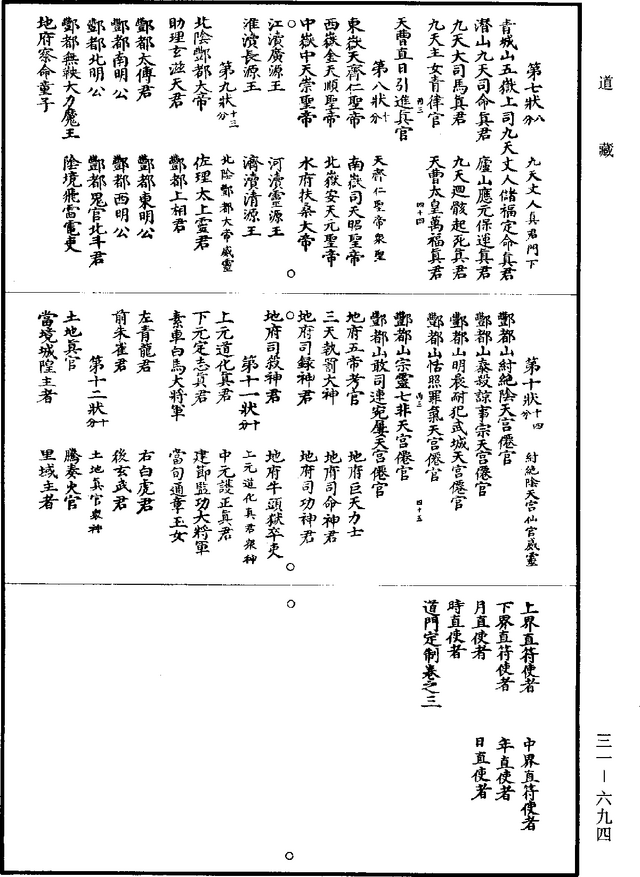 道藏
第七狀八分　九天丈人真君門下
青城山五嶽上司九天丈人儲福定命真君
潛山九天司命真君　廬山應元保運真君
九天大司馬真君　九天迴骸起死真君
九天主女青律官　天曹太皇萬福真君
丙三　四十四
天曹直日引進真官
第八狀十分　天齊仁聖帝衆聖
東嶽天齊仁聖帝　南嶽司天昭聖帝
西嶽金天順聖帝　北嶽安天元聖帝
中嶽中天崇聖帝　水府扶桑大帝
江瀆廣源王　河瀆靈源王
淮瀆長源王　濟瀆清源王
第九狀十三分　北陰酆都大帝威靈
北陰酆都大帝　佐理太上靈君
助理玄滋天君　酆都上相君
酆都太傅君　酆都東明公
酆都南明公　酆都西明公
酆都北明公　酆都鬼官北斗君
酆都無鞅大力魔王　陰境飛雷電吏
地府察命童子
第十狀十四分　紂絕陰天宮仙官威靈
酆都山紂絕陰天宮僊官
酆都山泰殺諒事宗天宮僊官
酆都山明晨耐犯武城天宮僊官
酆都山恬照罪氣天宮僊官
酆都山宗靈七非天宮僊官
丙三　四十五
酆都山敢司連宛屢天宮僊官
地府五帝考官　地府巨天力士
三天執罰大神　地府司命神君
地府司録神君　地府司功神君
地府司殺神君　地府牛頭獄卒吏
第十一狀十分　上元道化真君衆神
上元道化真君　中元護正真君
下元定志真君　建節監功大將軍
素車白馬大將軍　當旬通章玉女
左青龍君　右白虎君
前朱雀君　後玄武君
第十二狀十分　土地真官衆神
土地真官　騰奏火官
當境城隍主者　里域主者
上界直符使者　中界直符使者
下界直符使者　年直使者
月直使者　日直使者
時直使者
道門定制卷之三
三一－六九四